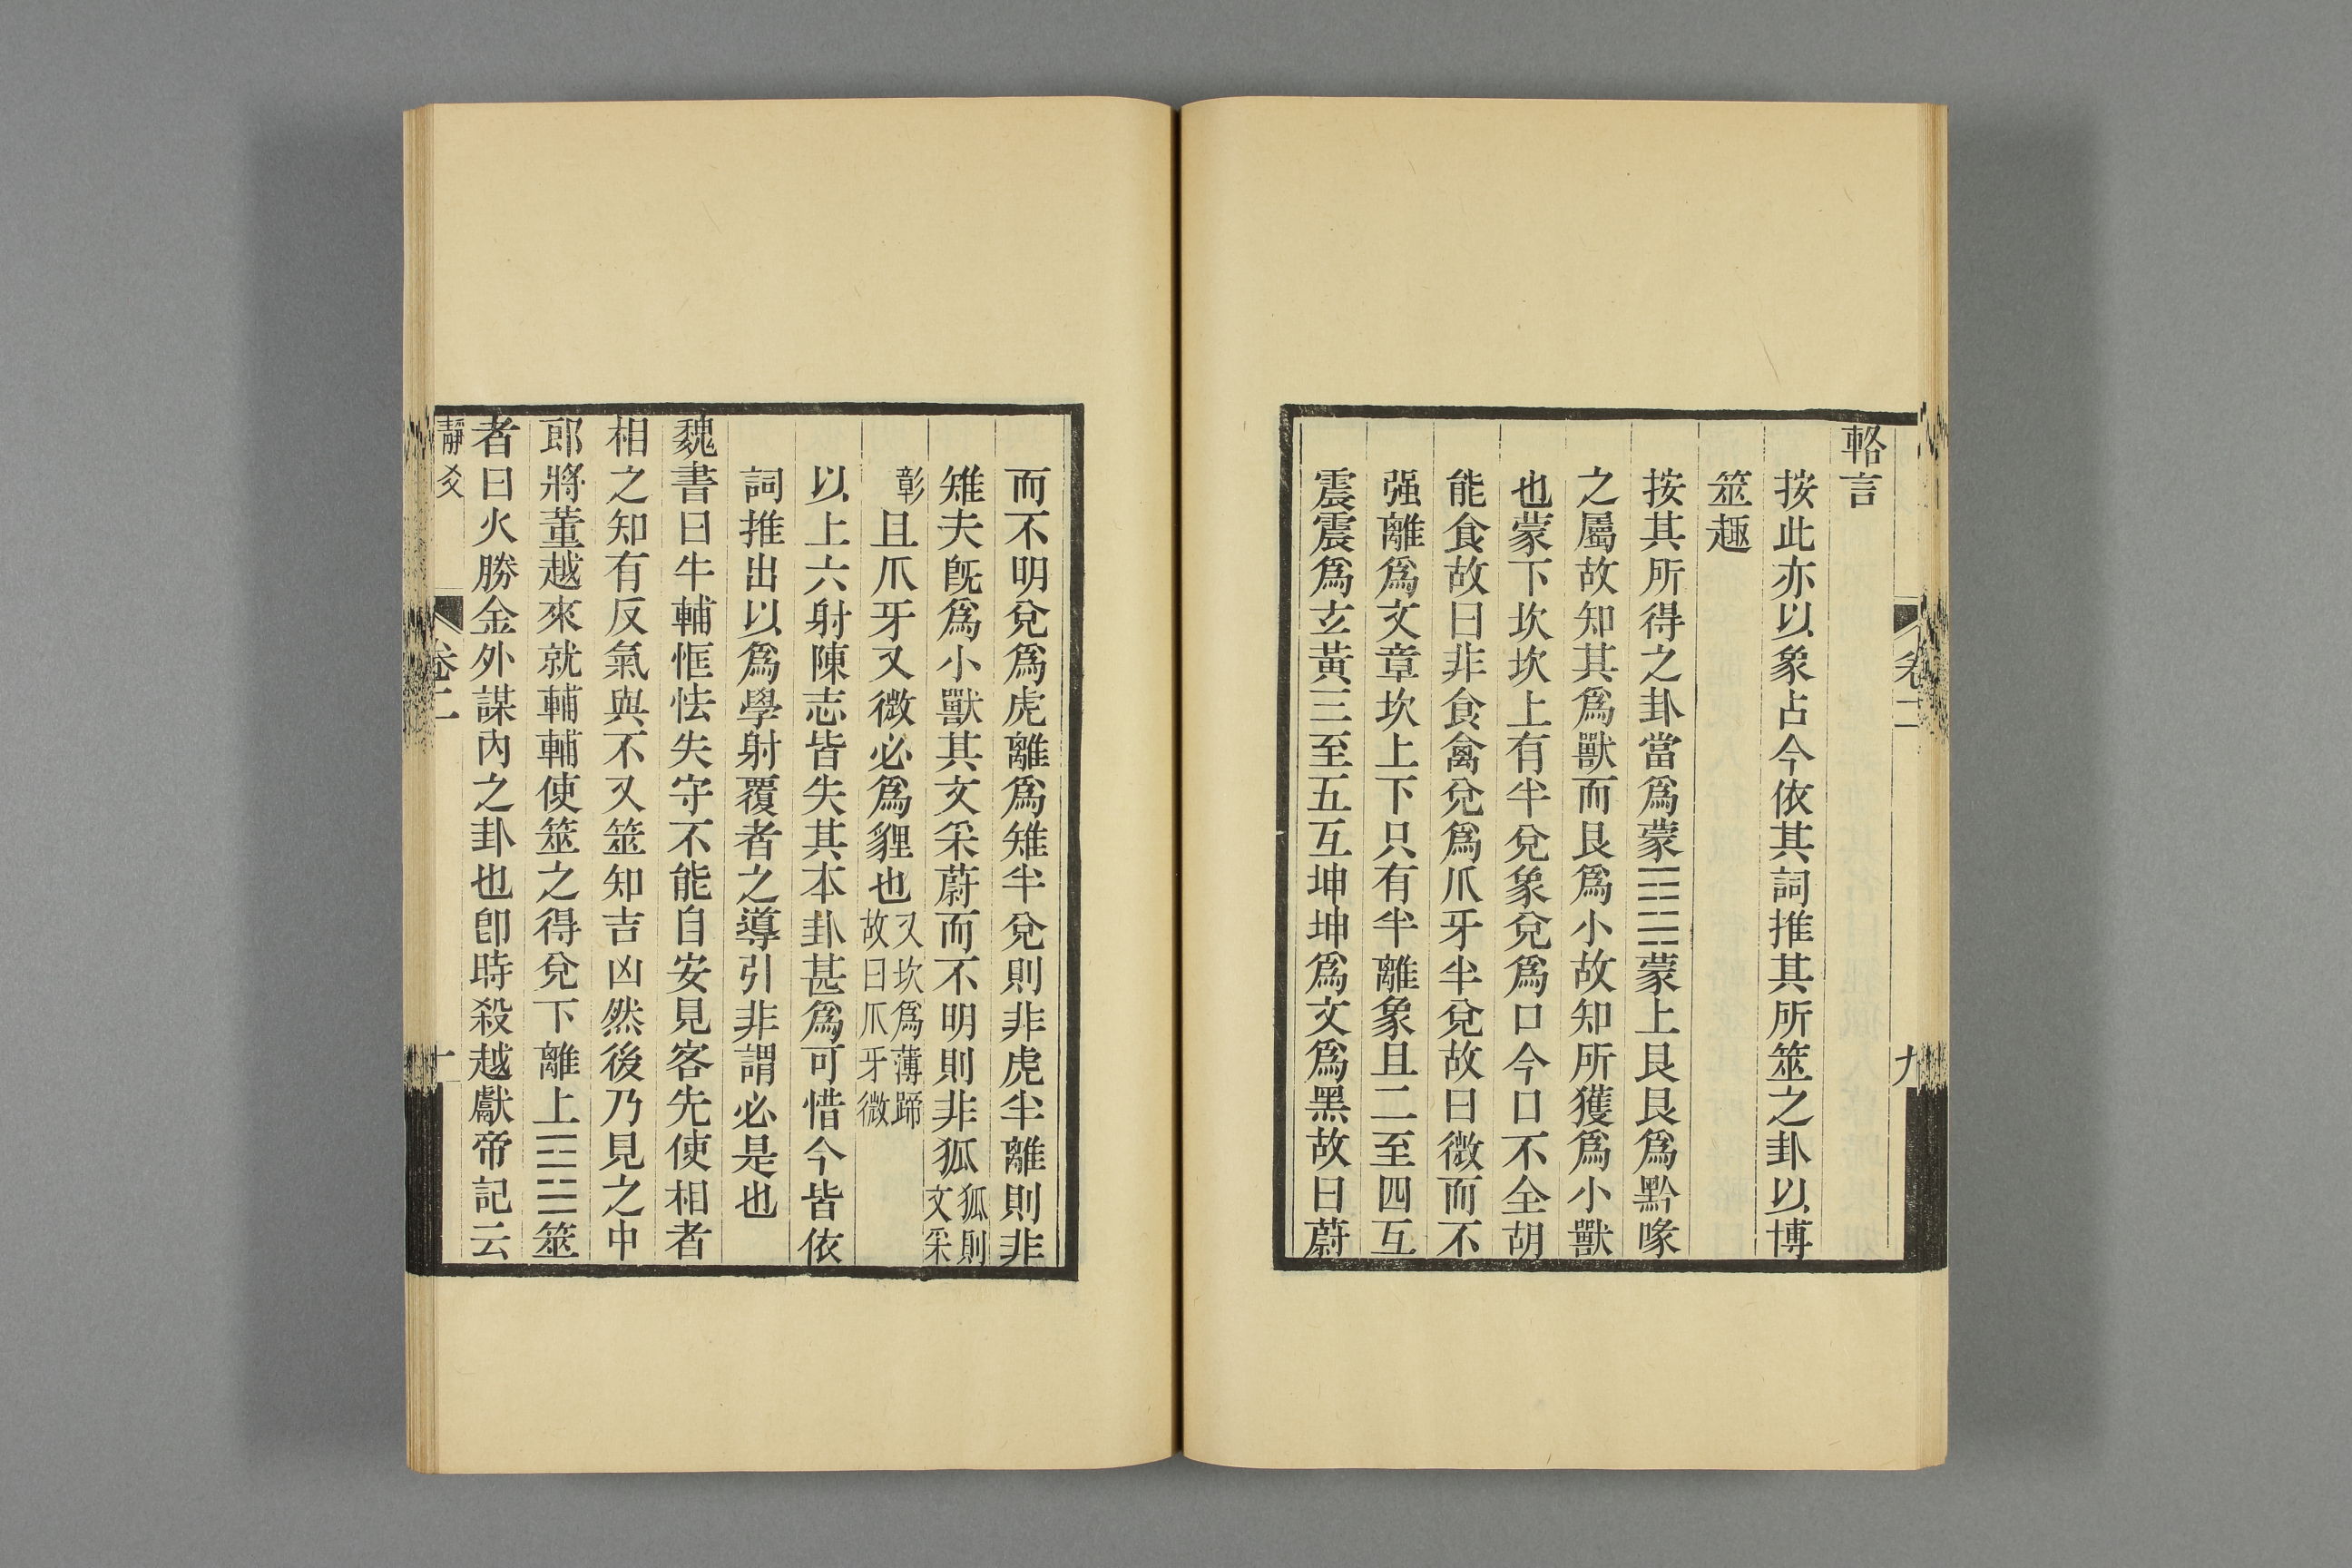 卷二
九
輅言
按此亦以象占今依其詞推其所筮之卦以博
筮趣
按其所得之卦當爲蒙䷃蒙上艮艮爲黔喙
之屬故知其爲獸而艮爲小故知所獲爲小獸
也蒙下坎坎上有半兌象兌爲口今口不全胡
能食故曰非食禽兌爲爪牙半兌故曰微而不
强離爲文章坎上下只有半離象且二至四互
震震爲玄黃三至五互坤坤爲文爲黑故曰蔚
而不明兌爲虎離爲雉半兌則非虎半離則非
雉夫旣爲小獸其文采蔚而不明則非狐狐則文采
彰且爪牙又微必爲貍也又坎爲薄蹄故曰爪牙微
以上六射陳志皆失其本卦甚爲可惜今皆依
詞推出以爲學射覆者之導引非謂必是也
魏書曰牛輔恇怯失守不能自安見客先使相者
相之知有反氣與不又筮知吉凶然後乃見之中
郎將董越來就輔輔使筮之得兌下離上䷥筮
者曰火勝金外謀內之卦也卽時殺越獻帝記云
靜爻
卷二
十